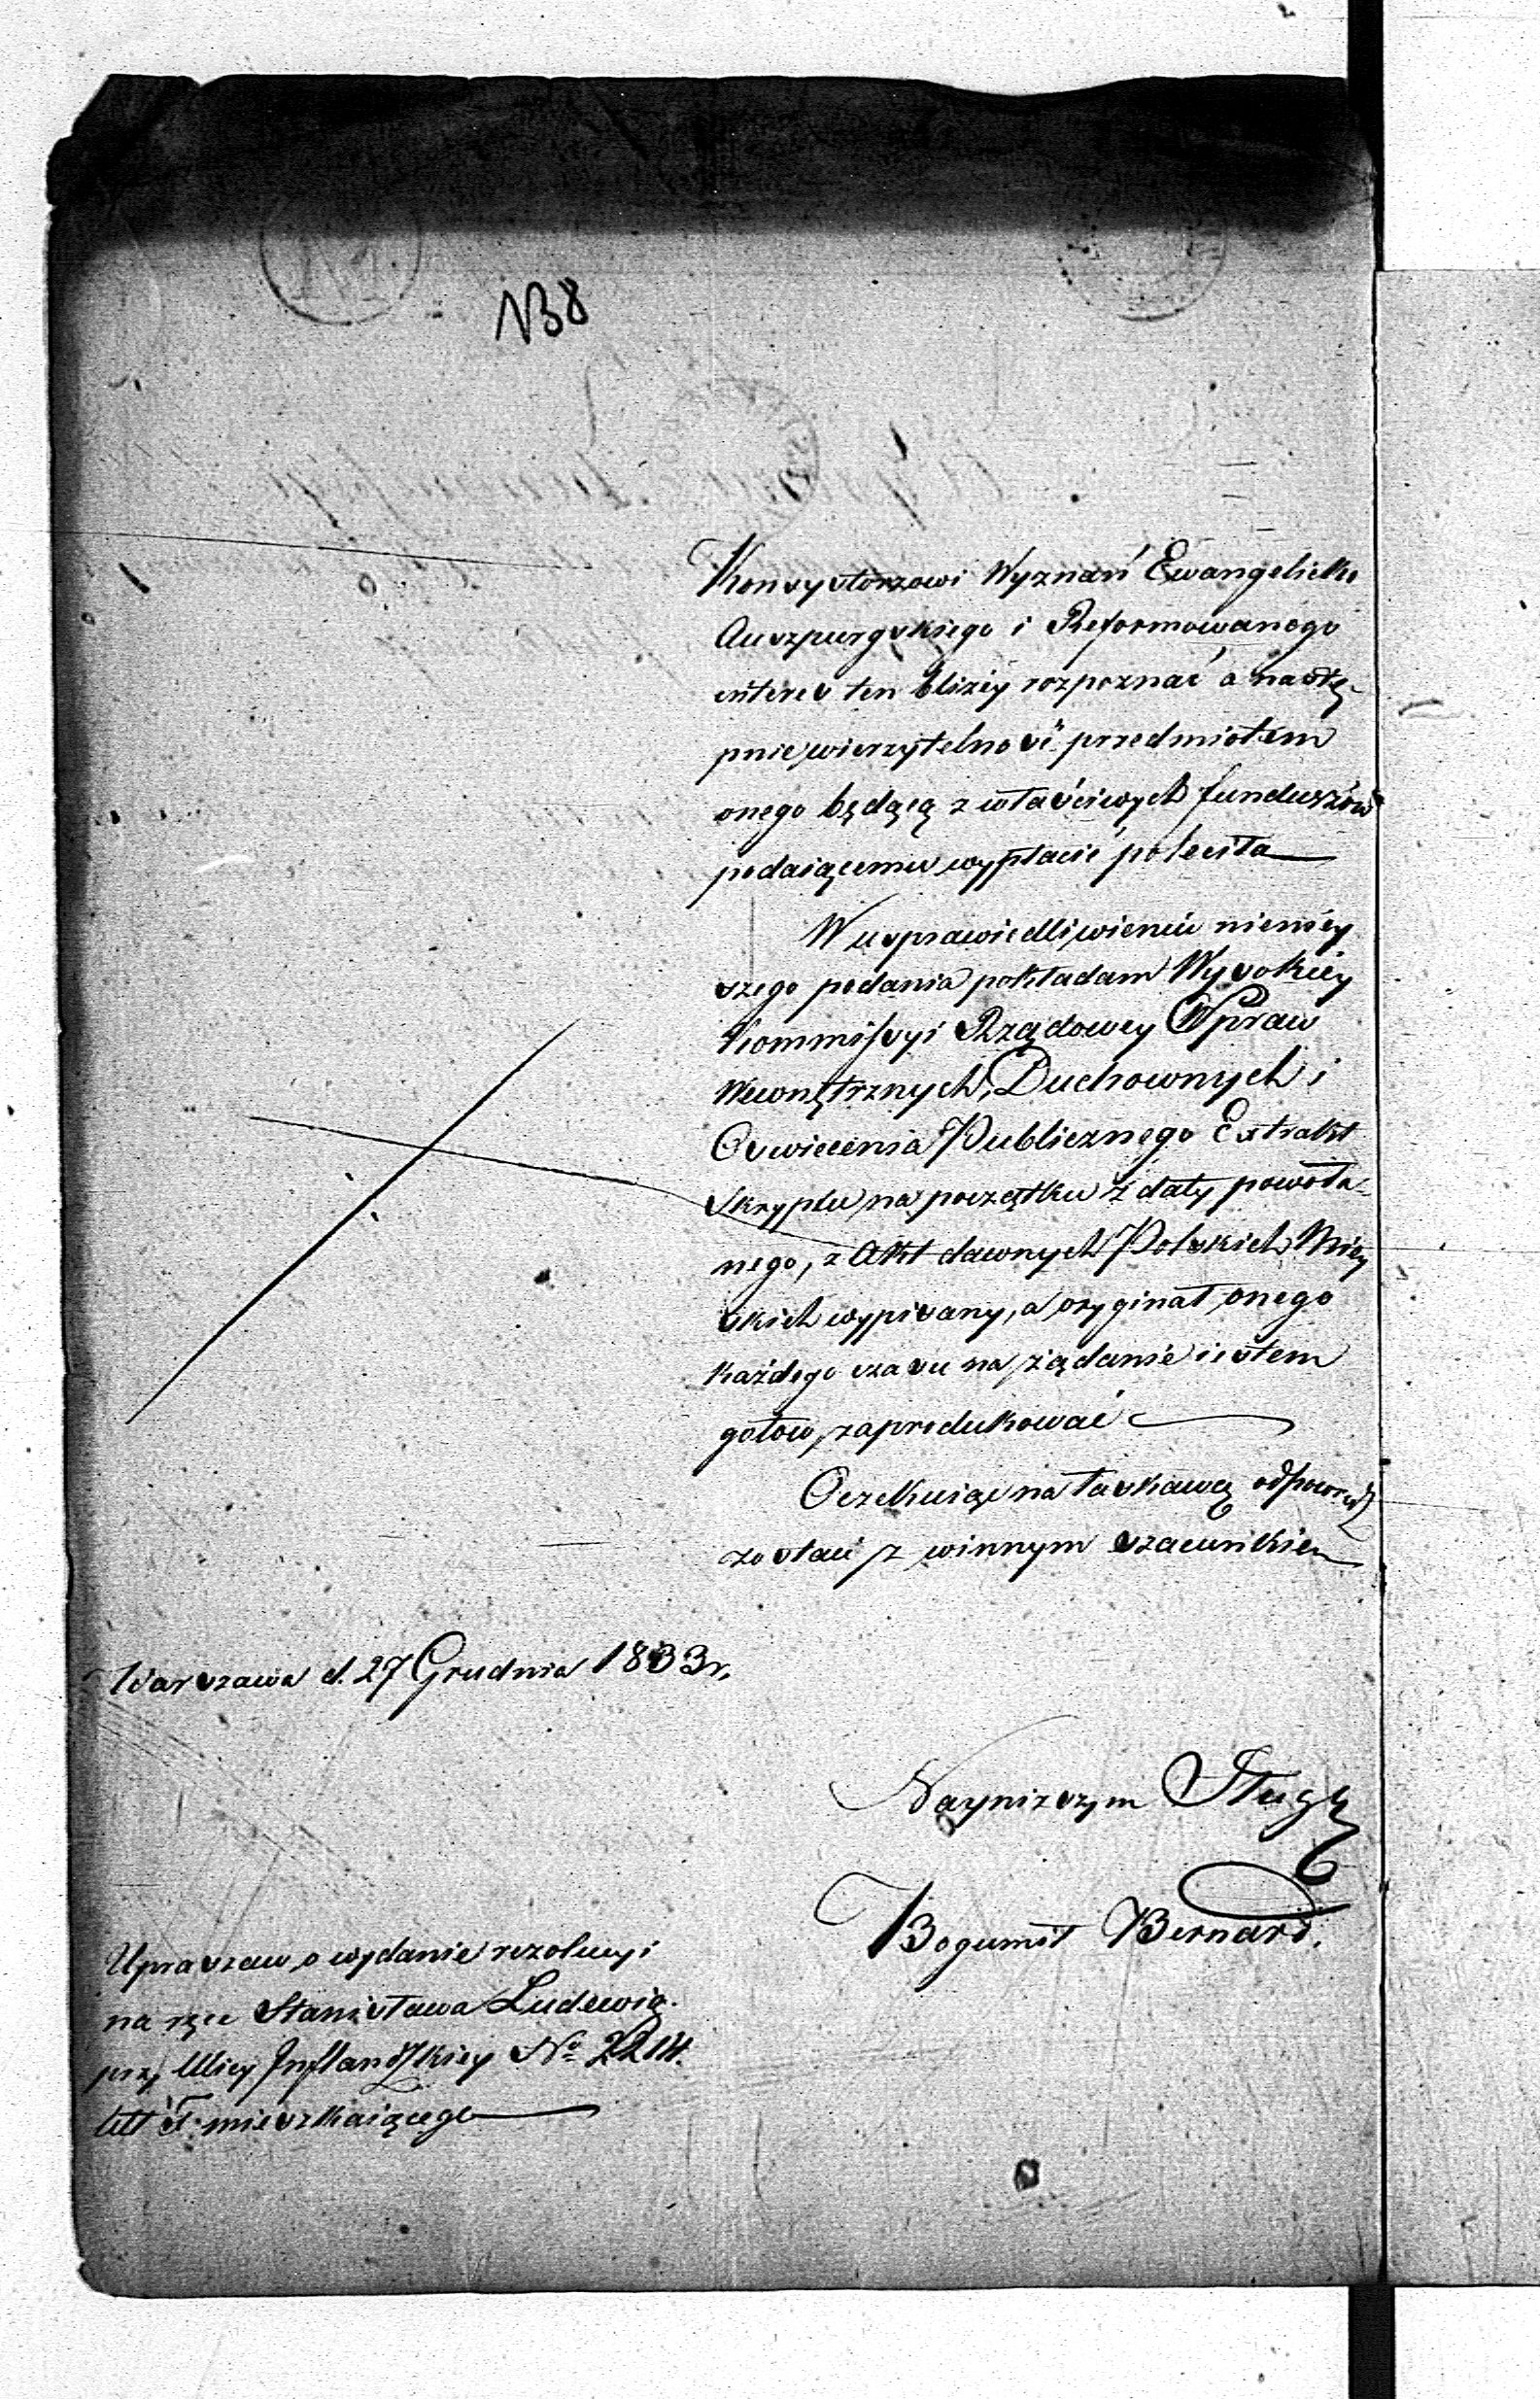 138
Konsystorzowi Wyznań Ewangelicko
Auszpurgskiego i Reformowanego
interes ten bliżey rozpoznać a nastę-
pnie wierzytelność przedmiotem
onego będącą z właściwych funduszów
podaiącemu wypłacić poleciła
W usprawiedliwieniu nieniey
szego podania pokładam Wysokiey
Kommissyi Rządowey Spraw
Wewnętrznych, Duchownych i
Oswiecenia Publicznego Extrakt
Skryptu na początku z daty powoła-
nego, z Akt dawnych Polskich Miey
skich wypisany, a oryginał onego
każdego czasu na żądanie iestem
gotow zaprodukować
Oczekuiąc na łaskawą odpowiedź
zostaię z winnym szacunkiem
Warszawa d. 27 Grudnia 1833 r.
Nayniższym Sługą
Bogumił Bernard.
Upraszam o wydanie rezolucyi
na ręce Stanisława Ludewig
przy Ulicy Inflandskiey No 2214.
litt F. mieszkaiącego